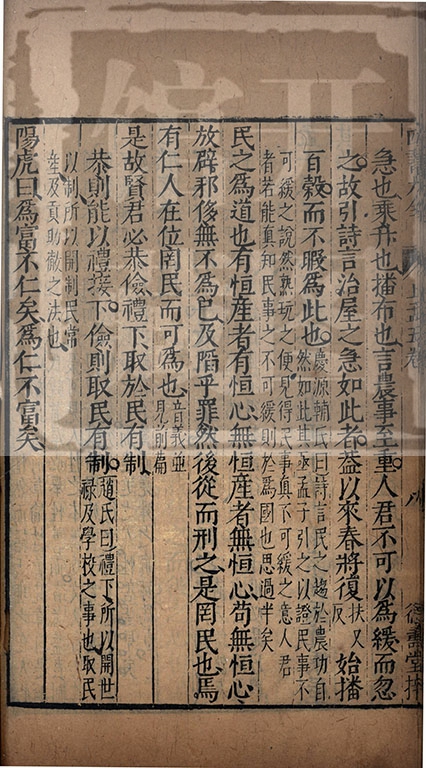 急也乘升也播布也言農事至重人君不可以為緩而忽
之故引詩言治屋之急如此者蓋以來春將復扶又反始播
百穀而不暇為此也慶源輔氏曰詩言民之趨於農功自
然如此其亟孟子引之以證民事不
可緩之說然熟玩之便見得民事真不可緩之意人君
者若能真知民事之不可緩則於為國也思過半矣
民之為道也有恒產者有恒心無恒產者無恒心苟無恒心
放辟邪侈無不為已及陷乎罪然後從而刑之是罔民也焉
有仁人在位罔民而可為也音義並
見前篇
是故賢君必恭儉禮下取於民有制
恭則能以禮接下儉則取民有制趙氏曰禮下所以開世
祿及學校之事也取民
以制所以開制民常
產及貢助徹之法也
陽虎曰為富不仁矣為仁不富矣
德壽堂梓